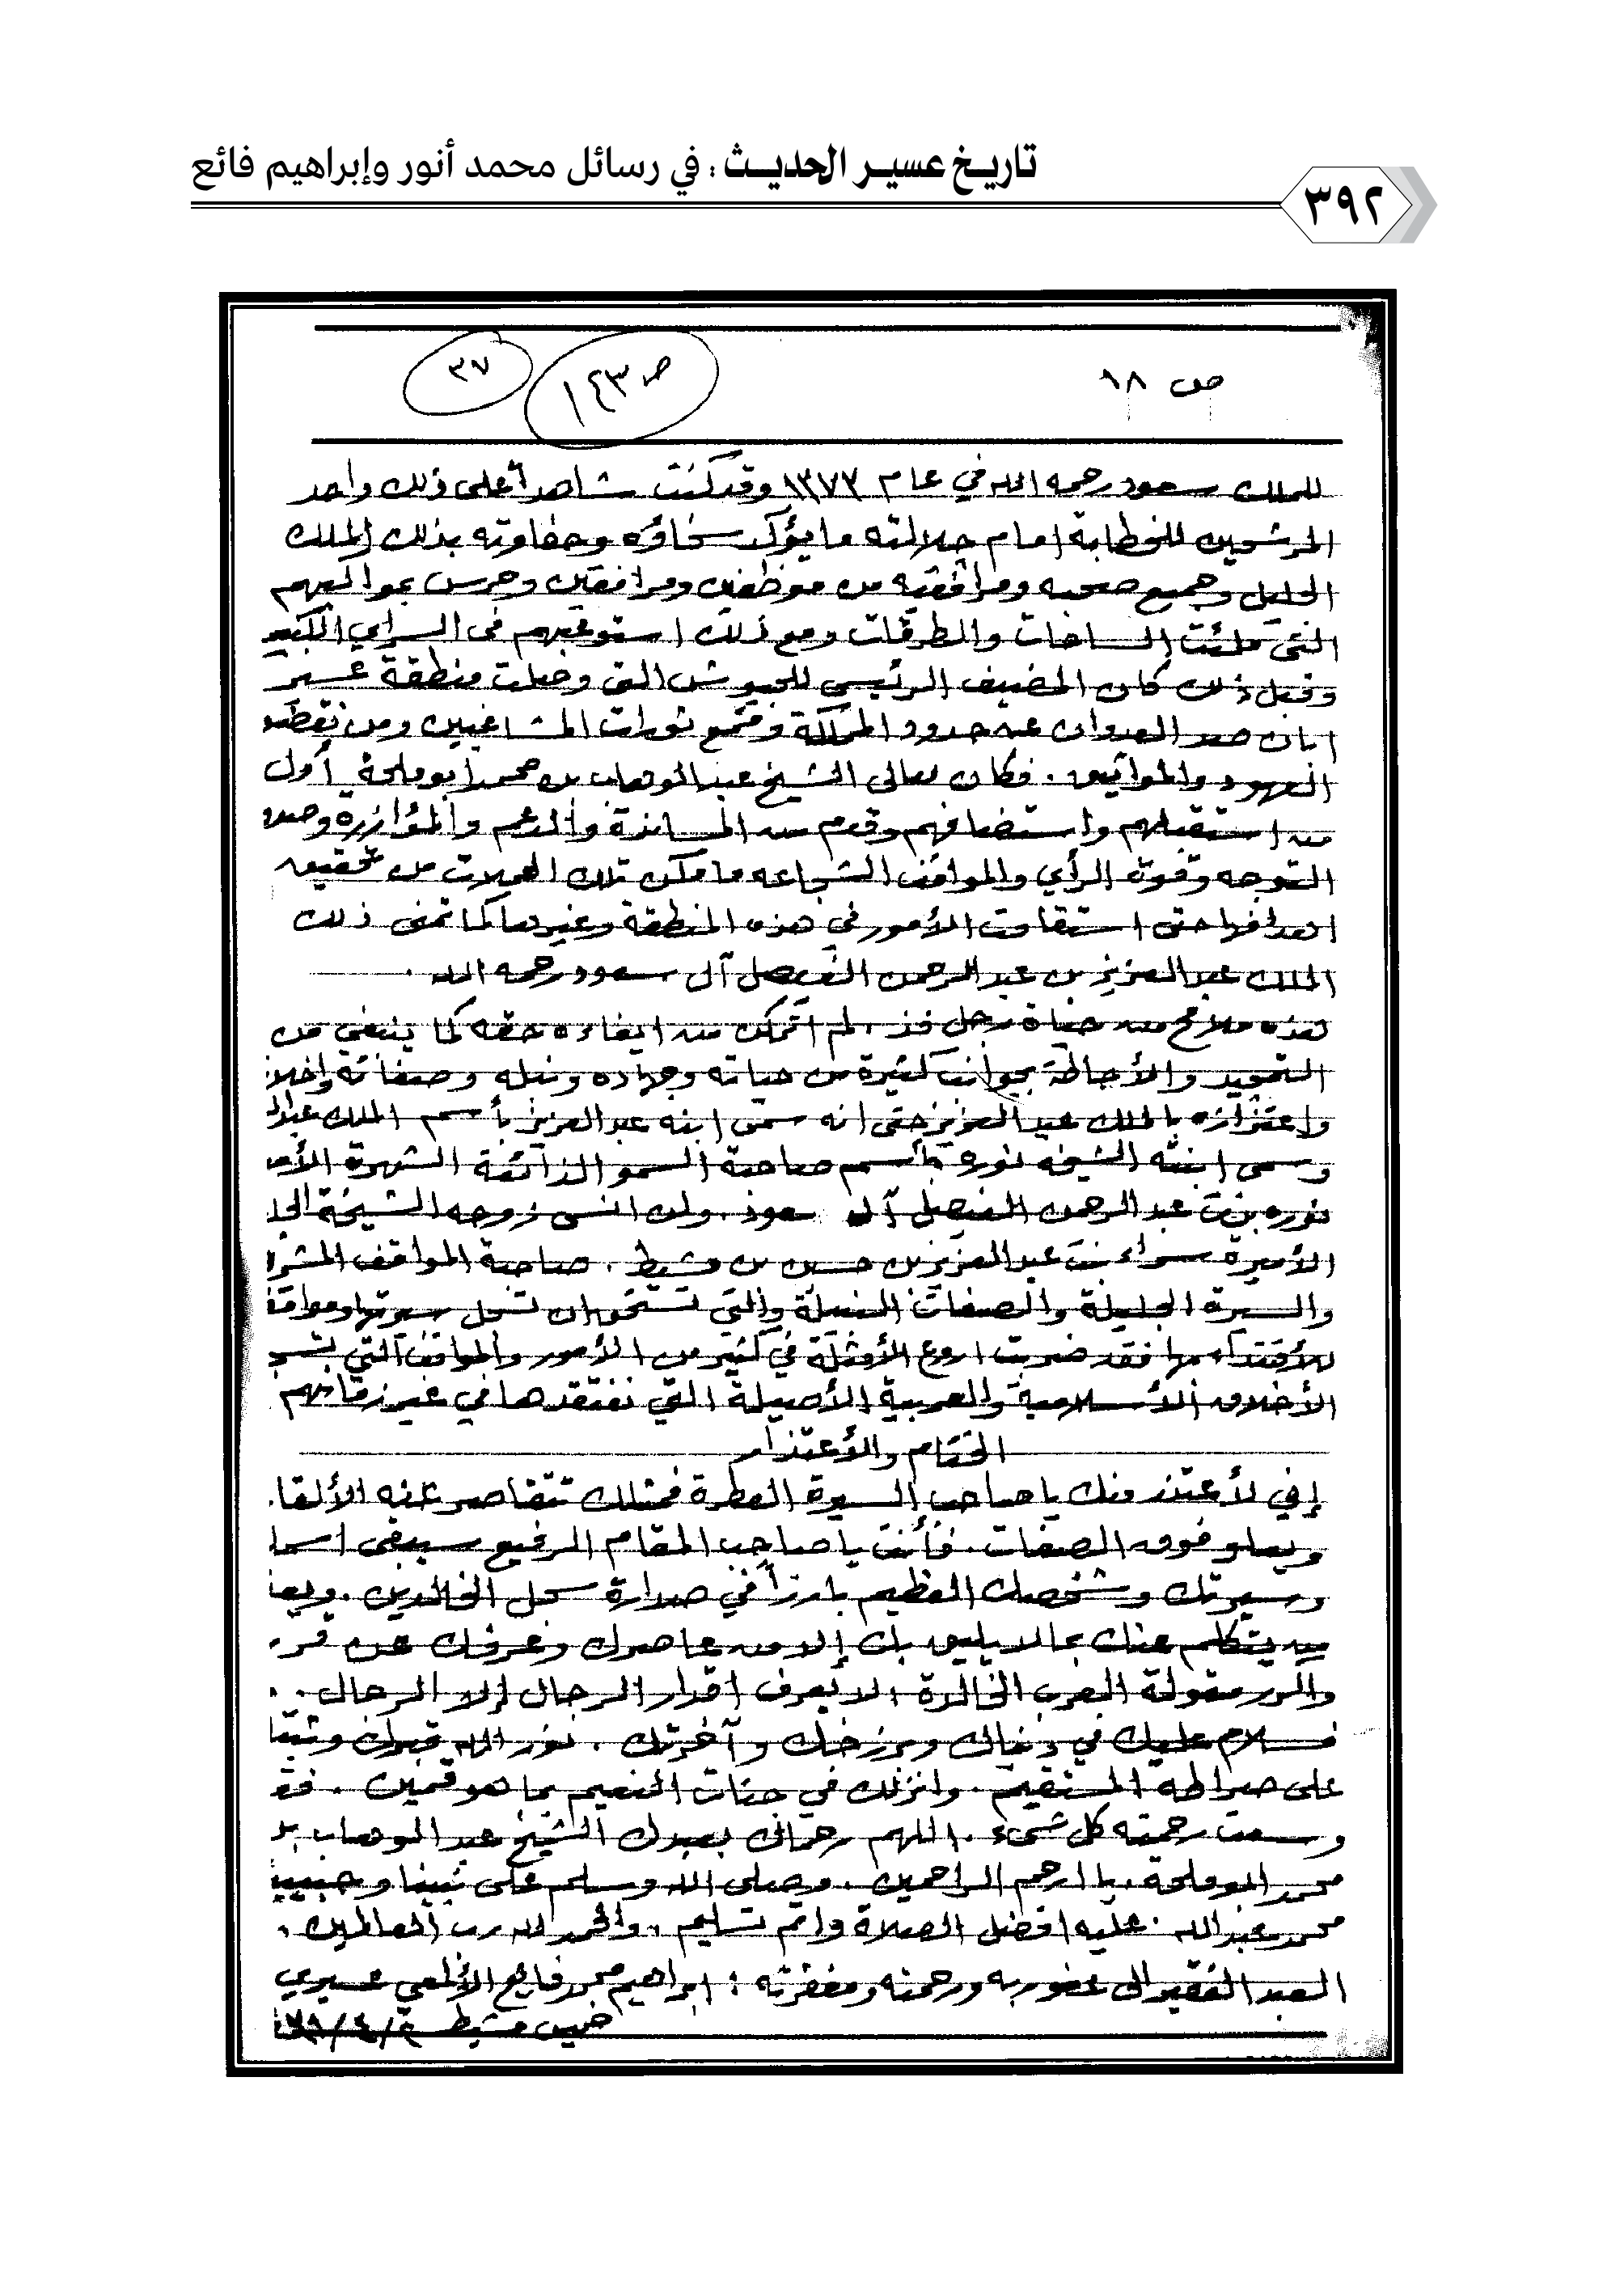 تاريخ عسير الحديث : في رسائل محمد أنور وإبراهيم فائع
٣٩٢
ص ١٨
ص ١٤٣
٣٧
للملك سعود رحمه الله في عام ١٣٧٣ وقد كنت شاهداً على ذلك واحد
المرشحين للخطابة امام جلالته ما يؤكد سخاؤه وحفاوته بذلك الملك
الجليل وجميع صحبه ومرافقيه من موظفين ومرافقين وحرس بمواكبهم
التي ملئت الساحات والطرقات ومع ذلك استوعبهم في السراي الكبير
وقبل ذلك كان المضيف الرئيسي للجيوش التي وصلت منطقة عسير
ابان صد العدوان عن حدود المملكة وقمع ثورات المشاغبين ومن نقض
العهود والمواثيق . فكان معالي الشيخ عبد الوهاب بن محمد ابو ملحة أول
من استقبلهم واستضافهم وقدم من المساندة والدعم والمؤازرة وحسن
التوجه وقوت الرأي والمواقف الشجاعه ما مكن تلك الحملات من تحقيق
اهدافها حتى استقامت الأمور في هذه المنطقة وغيرها كما تمنى ذلك
الملك عبد العزيز بن عبد الرحمن الفيصل آل سعود رحمه الله .
هذه ملامح من حياة رجل فذ ، لم اتمكن من ايفاءه حقه كما ينبغي من
التمجيد والأحاطة بجوانب كثيرة من حياته وجهاده ونبله وصفاته واخلا
واعتزازه بالملك عبد العزيز حتى انه سمى ابنه عبد العزيز بأسم الملك عبدال
وسمى ابنته الشيخه نوره بأسم صاحبة السمو الذائعة الشهرة الأم
نوره بنت عبد الرحمن الفيصل آل سعود . ولن انسى زوجه الشيخة الجل
الأميرة سراء بنت عبد العزيز بن حسين بن مشيط . صاحبة المواقف المشر
والسيرة الجليلة والصفات النبيلة والتي تستحق ان تسجل سيرتها ومواقف
للأقتداء بها فقد ضربت اروع الأمثلة في كثير من الأمور والمواقف التي
الأخلاق الأسلامية والعربية الأصيلة التي نفتقدها في غير زمانهم
الختام والأعتذار
إني لأعتذر منك يا صاحب السيرة العطرة فمثلك تتقاصر عنه الألقا
ويعلو فوق الصفات . فأنت يا صاحب المقام الرفيع سيبقى اسم
وسيرتك وشخصك العظيم بارزاً في صدارة سجل الخالدين .
من يتكلم عنك بما لا يليق بك إلا من عاصرك وعرفك عن قر
مقولة العرب الخالدة ، لا يعرف اقدار الرجال إلا الرجال .
فسلام عليك في دنياك وبرزخك وآخرتك . نور الله قبرك وثبتك
على صراطه المستقيم . وانزلك في جنات النعيم بما هو قمين . فقد
وسعت رحمته كل شيء . اللهم رحماك بعبدك الشيخ عبد الوهاب بن
محمد ابو ملحة . يا ارحم الراحمين . وصلى الله وسلم على نبينا وحبيبنا
محمد بن عبد الله . عليه افضل الصلاة واتم تسليم . والحمد لله رب العالمين .
العبد الفقير الى عفو ربه ورحمته ومغفرته : ابراهيم محمد فايع الألمعي عسيري
خميس مشيط